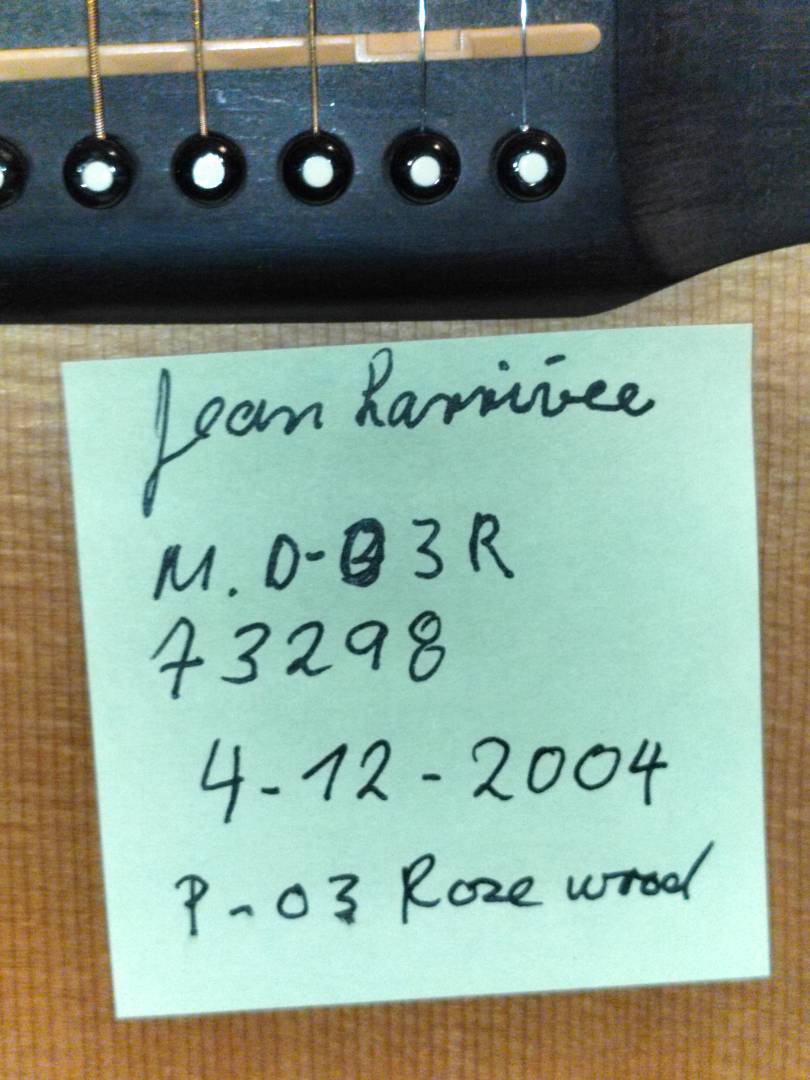 Jean Larrivée
M. D-03R
73298
4-12-2004
P-03 Rosewood